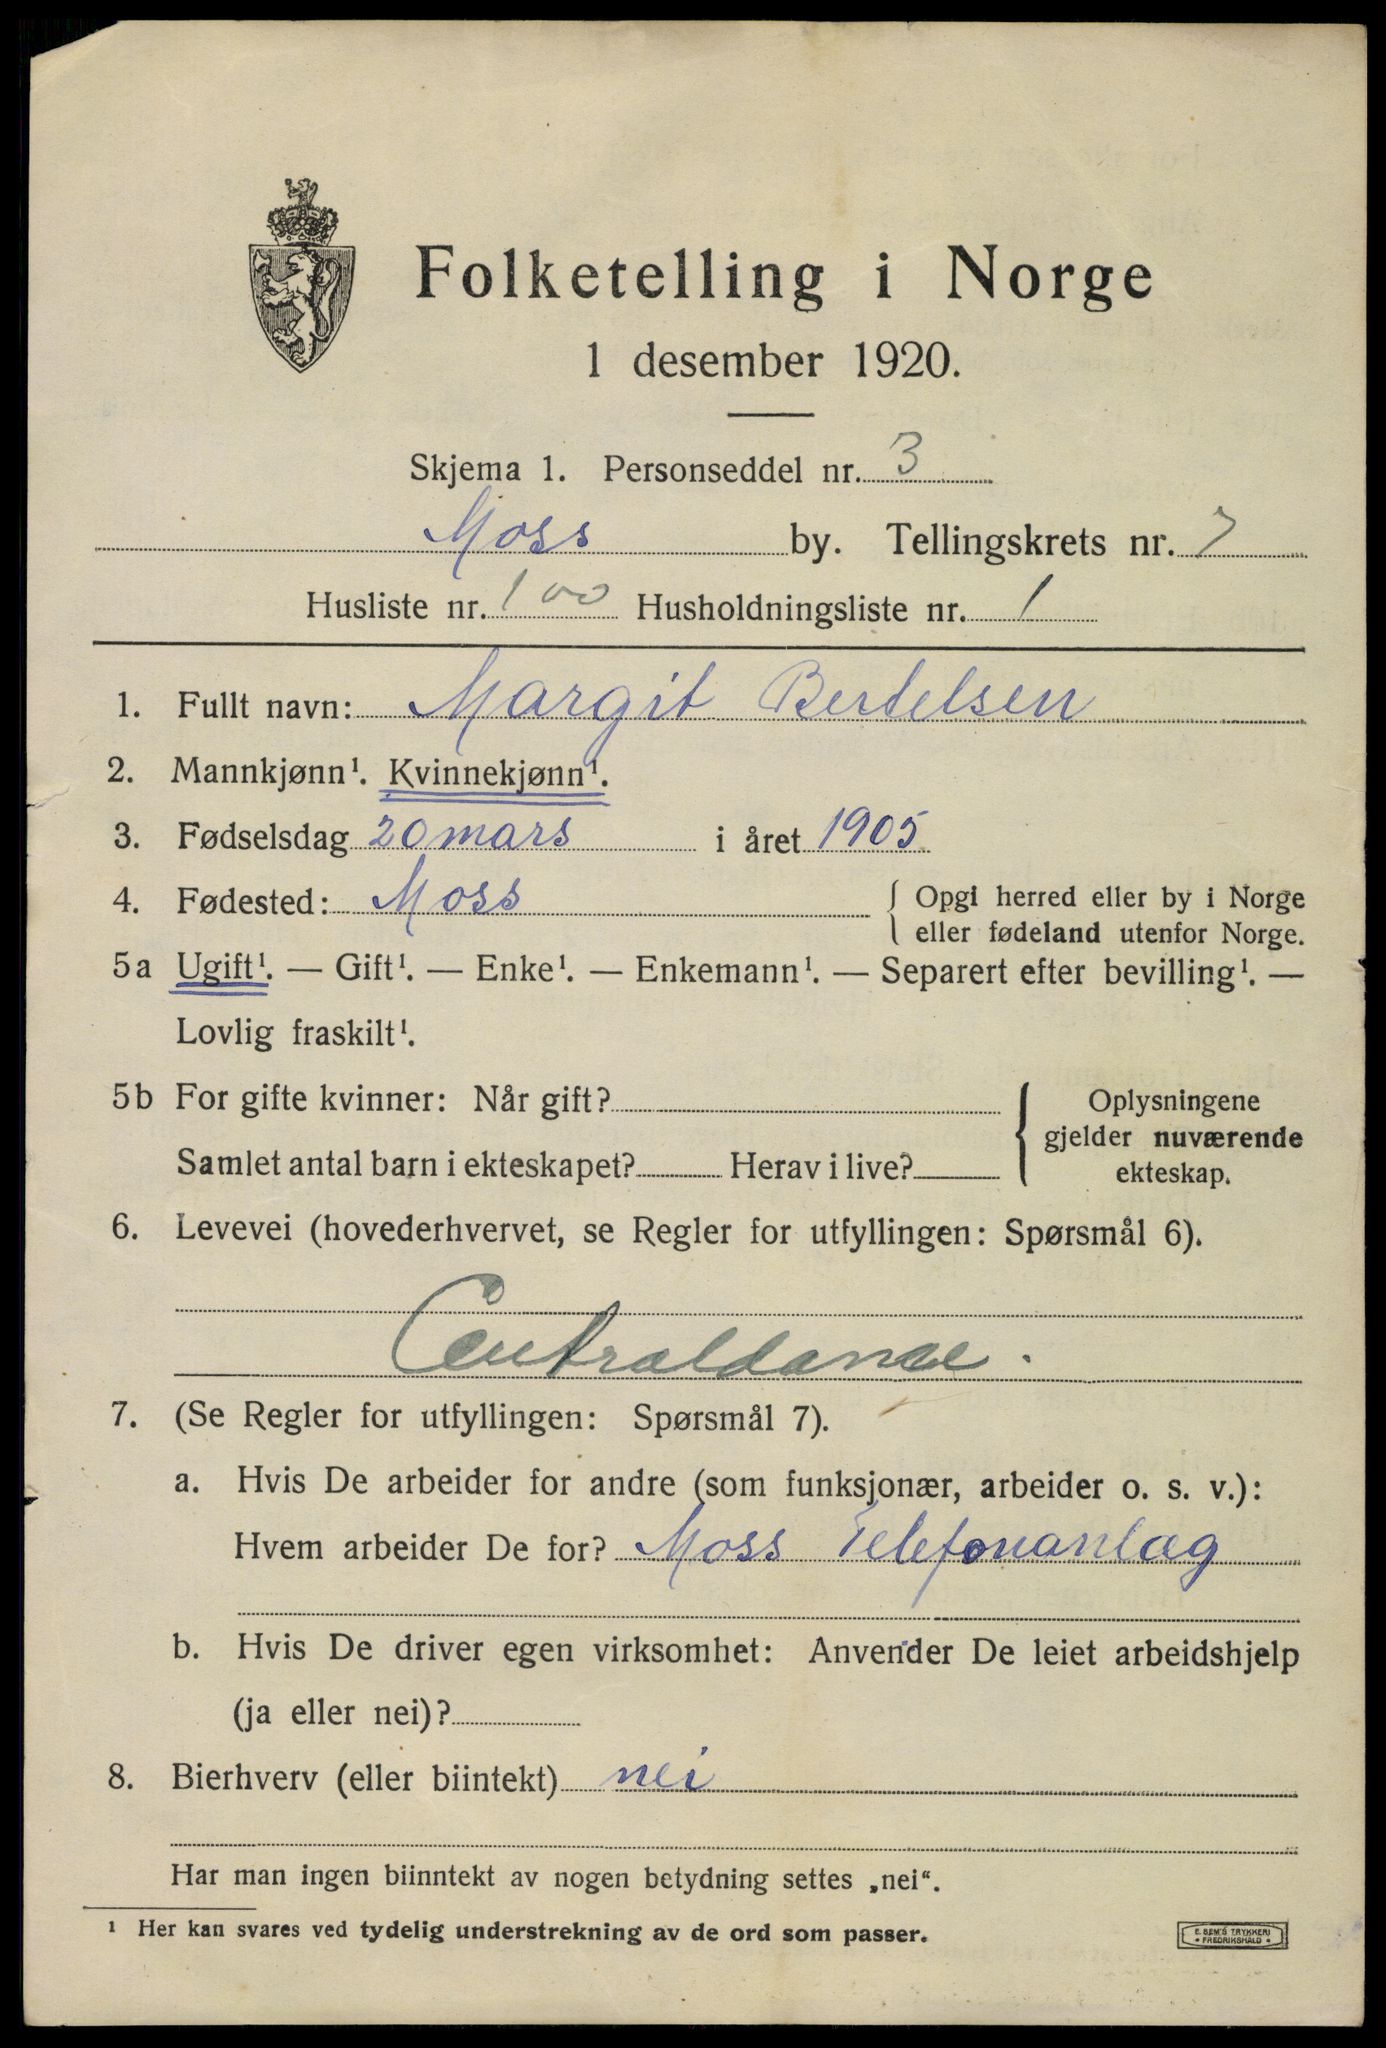 Folketelling i Norge
1 desember 1920.
Skjema 1. Personseddel nr. 3
Moss by. Tellingskrets nr. 7
Husliste nr. 100 Husholdningsliste nr. 1
1. Fullt navn: Margit Bertelsen
2. Mannkjønn¹. Kvinnekjønn¹.
3. Fødselsdag 20 mars i året 1905
4. Fødested: Moss { Opgi herred eller by i Norge
eller fødeland utenfor Norge.
5a Ugift¹. — Gift¹. — Enke¹. — Enkemann¹. — Separert efter bevilling¹. —
Lovlig fraskilt¹.
5b For gifte kvinner: Når gift? { Oplysningene
gjelder nuværende
Samlet antal barn i ekteskapet? Herav i live? ekteskap.
6. Levevei (hovederhvervet, se Regler for utfyllingen: Spørsmål 6).
Centraldame.
7. (Se Regler for utfyllingen: Spørsmål 7).
a. Hvis De arbeider for andre (som funksjonær, arbeider o. s. v.):
Hvem arbeider De for? Moss Telefonanlæg
b. Hvis De driver egen virksomhet: Anvender De leiet arbeidshjelp
(ja eller nei)?
8. Bierhverv (eller biintekt) nei
Har man ingen biinntekt av nogen betydning settes „nei“.
¹ Her kan svares ved tydelig understrekning av de ord som passer.
E. SEM'S TRYKKERI
• FREDRIKSHALD •